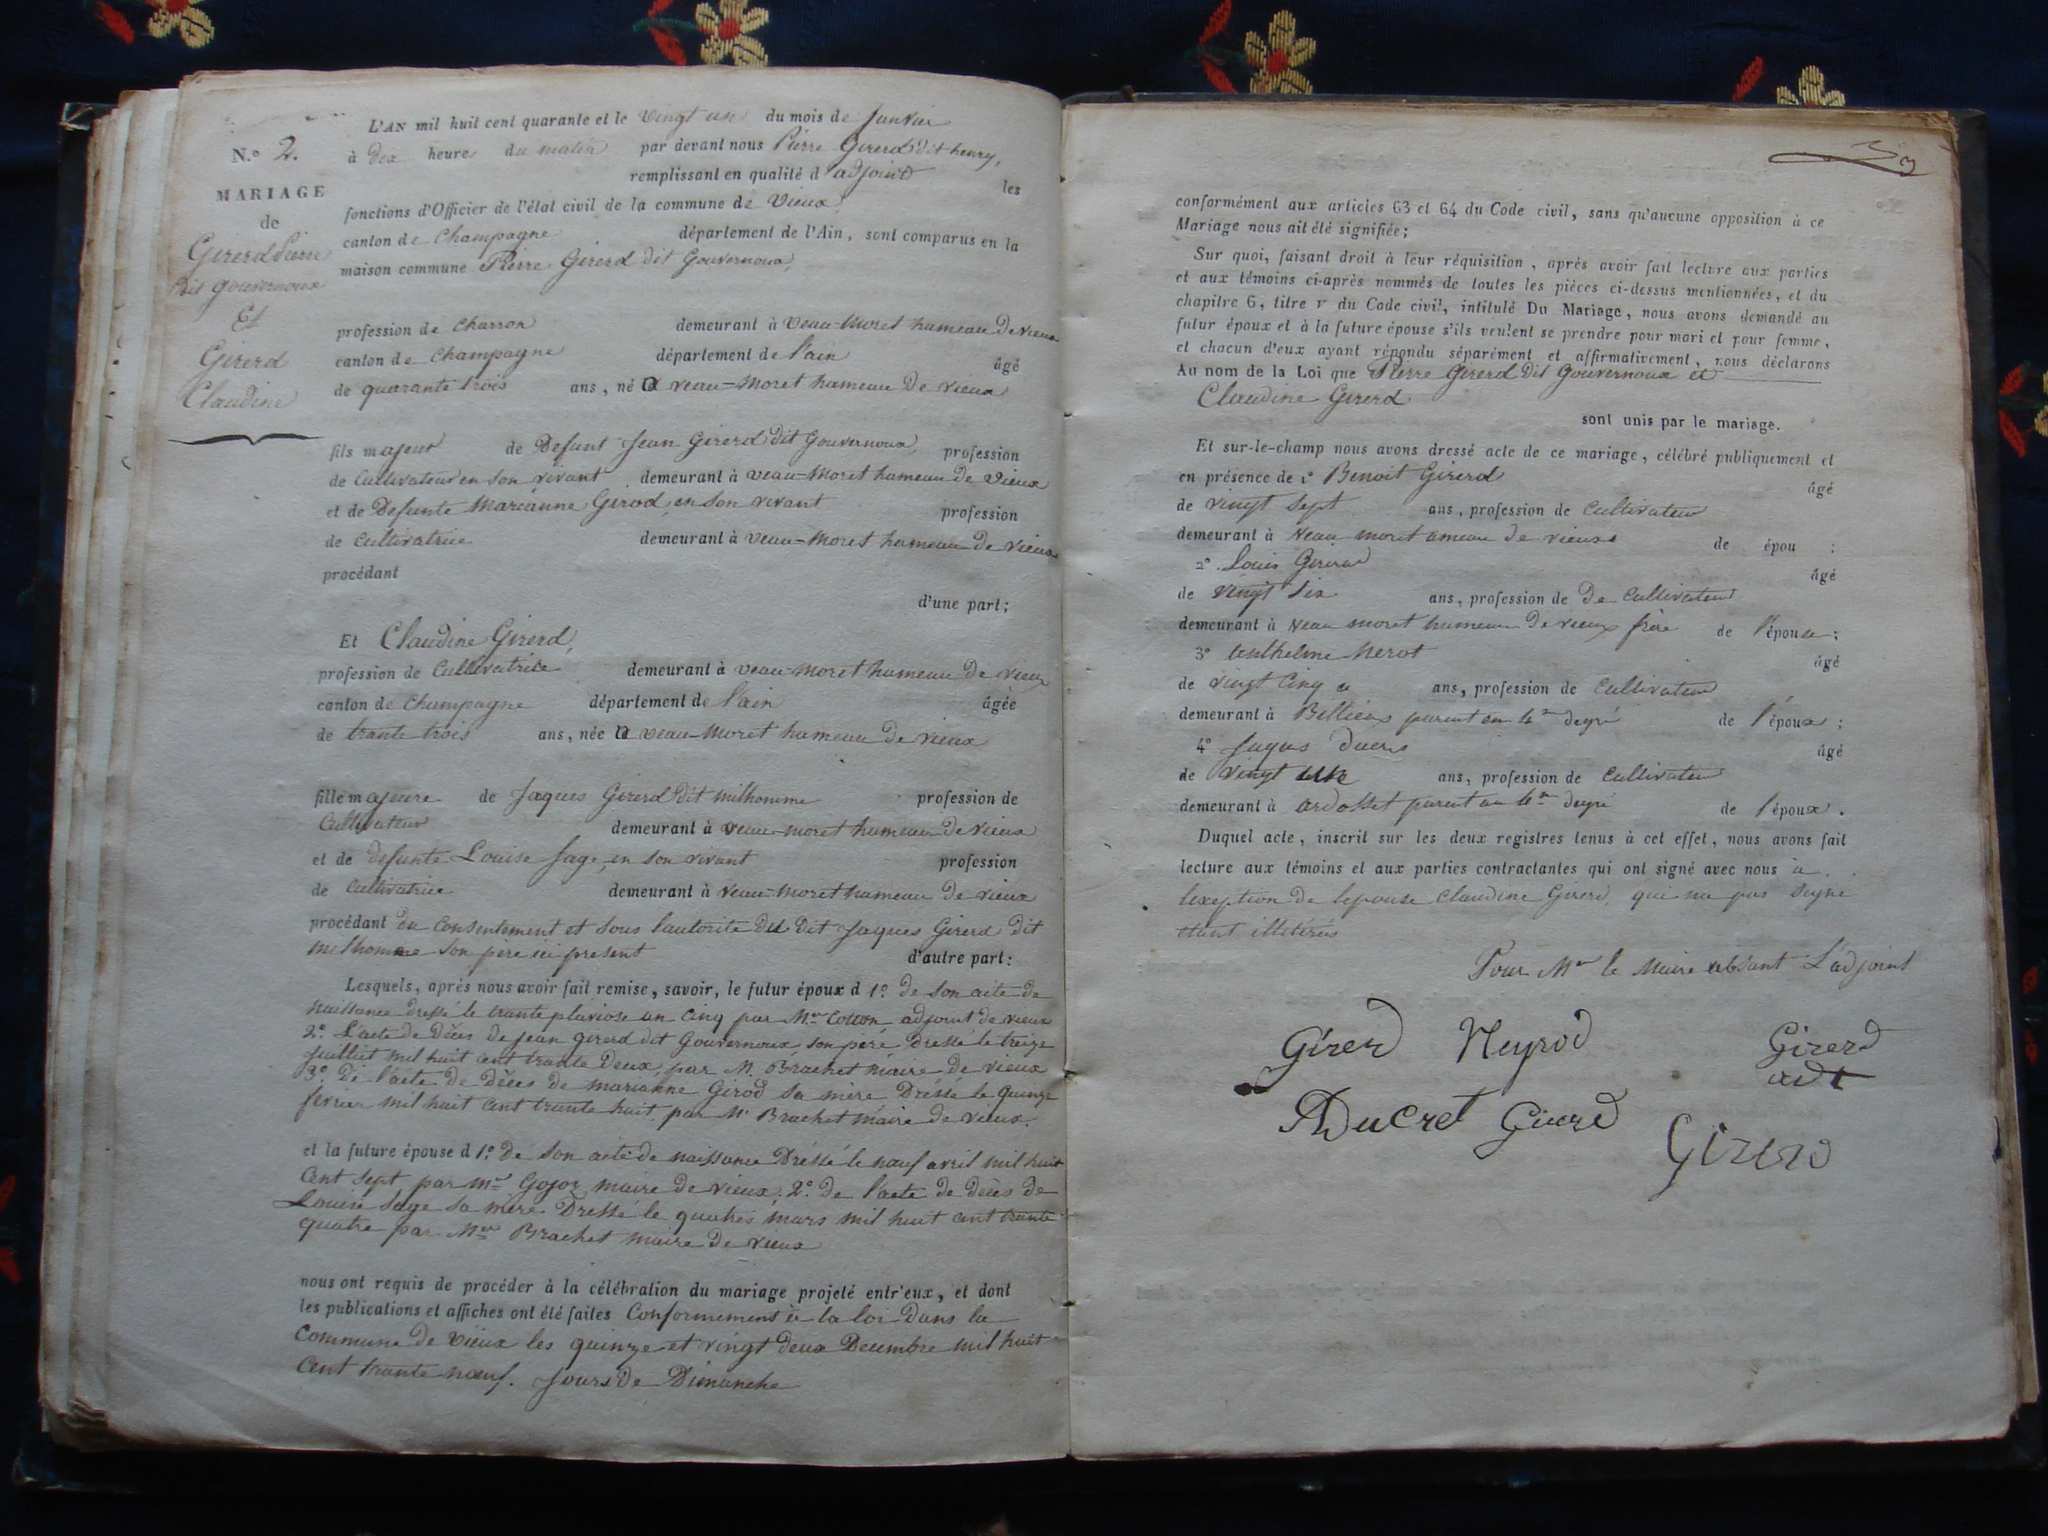 L'AN mil huit cent quarante et le vingt un du mois de Janvier
N.º 2. à dix heure du matin par devant nous Pierre Girerd dit henry,
remplissant en qualité d'adjoint les
MARIAGE
fonctions d'Officier de l'état civil de la commune de Vieux
de
canton de Champagne département de l'Ain, sont comparus en la
Girerd Pierre
maison commune Pierre Girerd dit Gouvernoux,
dit gouvernoux
Et
profession de Charron demeurant à Veau-Moret hameau de vieux
Girerd
canton de Champagne département de l'ain âgé
Claudine
de quarante trois ans, né a veau-Moret hameau de vieux
fils majeur de Defunt Jean Girerd dit Gouvernoux profession
de Cultivateur en son vivant demeurant à veau-Moret hameau de vieux
et de Defunte Marianne Girod, en son vivant profession
de Cultivatrice demeurant à veau-Moret hameau de vieux
procédant
d'une part;
Et Claudine Girerd,
profession de Cultivatrice demeurant à veau-Moret hameau de vieux
canton de Champagne département de l'ain âgée
de trante trois ans, née a veau-Moret hameau de vieux
fille majeure de Jaques Girerd dit milhomme profession de
Cultivateur demeurant à veau-moret hameau de vieux
et de defunte Louise Sage, en son vivant profession
de Cultivatrice demeurant à veau-Moret hameau de vieux
procédant du consentement et sous l'autorité du dit Jaques Girerd dit
milhomme son père ici present d'autre part:
Lesquels, après nous avoir fait remise, savoir, le futur époux d 1.º de son acte de
naissance dressé le trante pluviose an cinq par Mr adjoint de vieux
2.º L'acte de Décès de jean girerd dit Gouvernoux son pere Dressé le treize
juilliet mil huit cent trante Deux, par M. Brachet maire de vieux
3.º De l'acte de Décès de marianne Girod sa mère Dréssé le quinze
fevrier mil huit cent trante huit par Mr Brachet maire de vieux.
et la future épouse d 1.º de son acte de naissance Dréssé le nauf avril mil huit
Cent sept par mr Gojoz maire de vieux. 2.º de l'acte de décès de
Louise Sage sa mère Dressé le quatres mars mil huit cent trante
quatre par Mr Brachet maire de vieux
nous ont requis de procéder à la célébration du mariage projeté entr'eux, et dont
les publications et affiches ont été faites Conformement à la loi Dans la
Commune de Vieux les quinze et vingt deux Decembre mil huit
Cent trante nœuf. Jours de Dimanche
3
conformément aux articles 63 et 64 du Code civil, sans qu'aucune opposition à ce
Mariage nous ait été signifiée;
Sur quoi, faisant droit à leur réquisition, après avoir fait lecture aux parties
et aux témoins ci-après nommés de toutes les pièces ci-dessus mentionnées, et du
chapitre 6, titre v du Code civil, intitulé Du Mariage, nous avons demandé au
futur époux et à la future épouse s'ils veulent se prendre pour mari et pour femme,
et chacun d'eux ayant répondu séparément et affirmativement, nous déclarons
Au nom de la Loi que Pierre Girerd dit Gouvernoux et
Claudine Girerd
sont unis par le mariage.
Et sur-le-champ nous avons dressé acte de ce mariage, célébré publiquement et
en présence de 1º Benoit Girerd âgé
de vingt sept ans, profession de Cultivateur
demeurant à Veau moret ameau de vieux de épou ;
2º. Louis Girerd âgé
de vingt six ans, profession de De Cultivateur
demeurant à Veau moret hameau de vieux frère de l'épouse;
3º Anthelme Nerot âgé
de vingt Cinq ans, profession de Cultivateur
demeurant à Billieux parent au 4me degré de l'époux;
4º Jaques âgé
de vingt un ans, profession de Cultivateur
demeurant à ardosset parent au 4me degré de l'époux.
Duquel acte, inscrit sur les deux registres tenus à cet effet, nous avons fait
lecture aux témoins et aux parties contractantes qui ont signé avec nous à
lexeption de lepouse Claudine Girerd, qui na pas signé
étant illitérés
Pour Mr le Maire absant L'adjoint
Girerd Neyrod Girerd
adt
Ducret Girerd Girerd